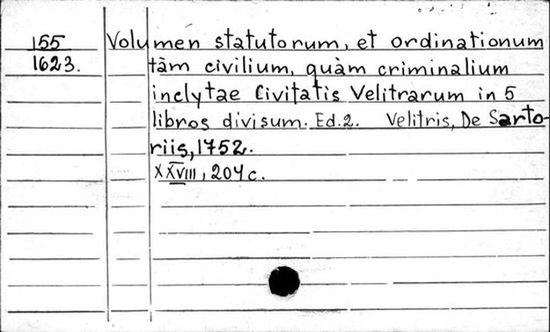 155 Volumen statutorum, et ordinationum
1623. tàm civilium, quàm criminalium
inclytae Civitatis Velitrarum in 5
libros divisum. Ed.2. Velitris, De Sarto-
riis, 1752.
XXVIII, 204 c.